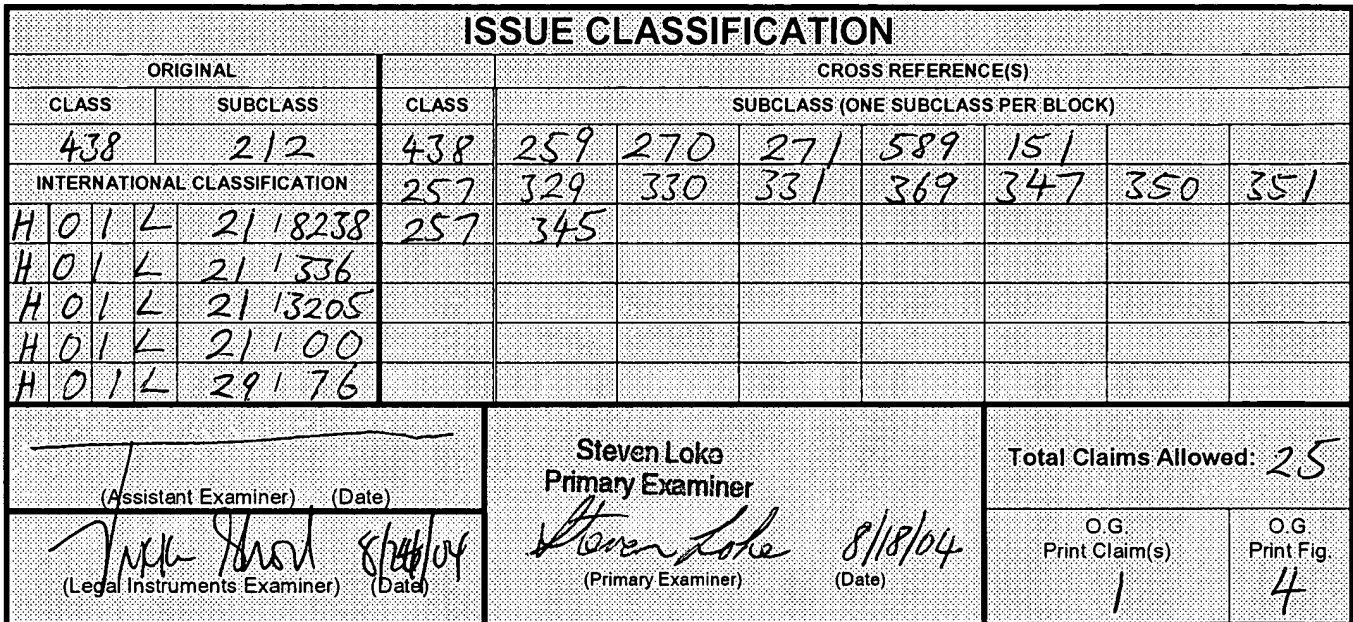 ISSUE CLASSIFICATION
ORIGINAL CROSS REFERENCE(S)
CLASS SUBCLASS CLASS SUBCLASS (ONE SUBCLASS PER BLOCK)
438 212 438 259 270 271 589 151
INTERNATIONAL CLASSIFICATION 257 329 330 331 369 347 350 351
H 0 1 L 21 / 8238 257 345
H 0 1 L 21 / 336
H 0 1 L 21 / 3205
H 0 1 L 21 / 00
H 0 1 L 29 / 76
(Assistant Examiner) (Date)
(Legal Instruments Examiner) (Date)
Steven Loke
Primary Examiner
Steven Loke 8/18/04
(Primary Examiner) (Date)
Total Claims Allowed: 25
O.G.
Print Claim(s)
1
O.G.
Print Fig.
4